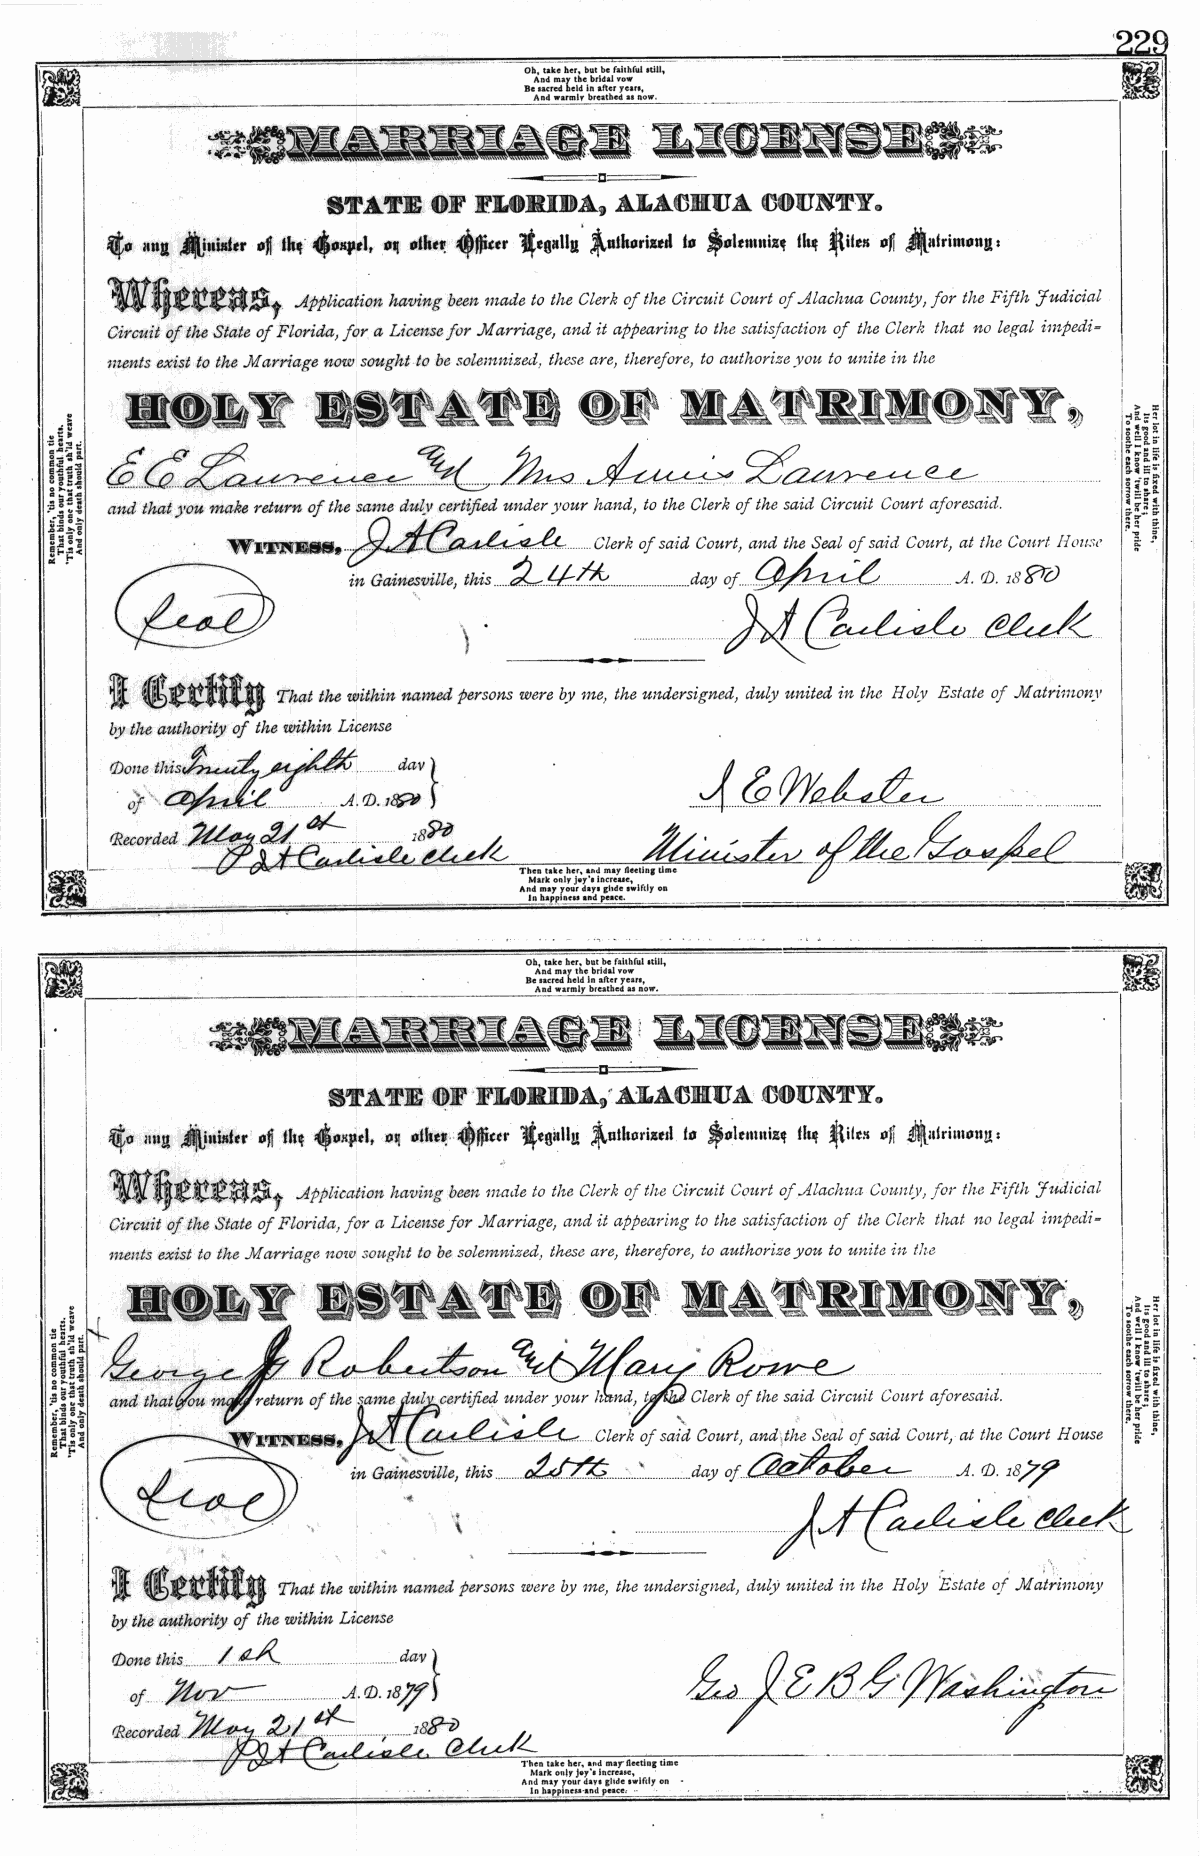 229
Oh, take her, but be faithful still,
And may the bridal vow
Be sacred held in after years,
And warmly breathed as now.
MARRIAGE LICENSE
STATE OF FLORIDA, ALACHUA COUNTY.
To any Minister of the Gospel, or other Officer Legally Authorized to Solemnize the Rites of Matrimony:
Whereas, Application having been made to the Clerk of the Circuit Court of Alachua County, for the Fifth Judicial
Circuit of the State of Florida, for a License for Marriage, and it appearing to the satisfaction of the Clerk that no legal impedi-
ments exist to the Marriage now sought to be solemnized, these are, therefore, to authorize you to unite in the
HOLY ESTATE OF MATRIMONY,
E E Lawrence and Mrs Lawrence
and that you make return of the same duly certified under your hand, to the Clerk of the said Circuit Court aforesaid.
WITNESS, J A Carlisle Clerk of said Court, and the Seal of said Court, at the Court House
in Gainesville, this 24th day of April A. D. 1880
Seal
J A Carlisle Clerk
I Certify That the within named persons were by me, the undersigned, duly united in the Holy Estate of Matrimony
by the authority of the within License
Done this Twenty eighth day
of April A. D. 1880
I E Webster
Recorded May 21st 1880
Minister of the Gospel
J A Carlisle Clerk
Then take her, and may fleeting time
Mark only joy's increase,
And may your days glide swiftly on
In happiness and peace.
Remember, 'tis no common tie
That binds our youthful hearts,
'Tis only one that truth sh'ld weave
And only death should part.
Her lot in life is fixed with thine,
Its good and ill to share;
And well I know 'twill be her pride
To soothe each sorrow there.
Oh, take her, but be faithful still,
And may the bridal vow
Be sacred held in after years,
And warmly breathed as now.
MARRIAGE LICENSE
STATE OF FLORIDA, ALACHUA COUNTY.
To any Minister of the Gospel, or other Officer Legally Authorized to Solemnize the Rites of Matrimony:
Whereas, Application having been made to the Clerk of the Circuit Court of Alachua County, for the Fifth Judicial
Circuit of the State of Florida, for a License for Marriage, and it appearing to the satisfaction of the Clerk that no legal impedi-
ments exist to the Marriage now sought to be solemnized, these are, therefore, to authorize you to unite in the
HOLY ESTATE OF MATRIMONY,
George J Robertson and Mary Rowe
and that you make return of the same duly certified under your hand, to the Clerk of the said Circuit Court aforesaid.
WITNESS, J A Carlisle Clerk of said Court, and the Seal of said Court, at the Court House
in Gainesville, this 25th day of October A. D. 1879
Seal
J A Carlisle Clerk
I Certify That the within named persons were by me, the undersigned, duly united in the Holy Estate of Matrimony
by the authority of the within License
Done this 1st day
of Nov A. D. 1879
Geo J E B G Washington
Recorded May 21st 1880
J A Carlisle Clerk
Then take her, and may fleeting time
Mark only joy's increase,
And may your days glide swiftly on
In happiness and peace.
Remember, 'tis no common tie
That binds our youthful hearts,
'Tis only one that truth sh'ld weave
And only death should part.
Her lot in life is fixed with thine,
Its good and ill to share;
And well I know 'twill be her pride
To soothe each sorrow there.